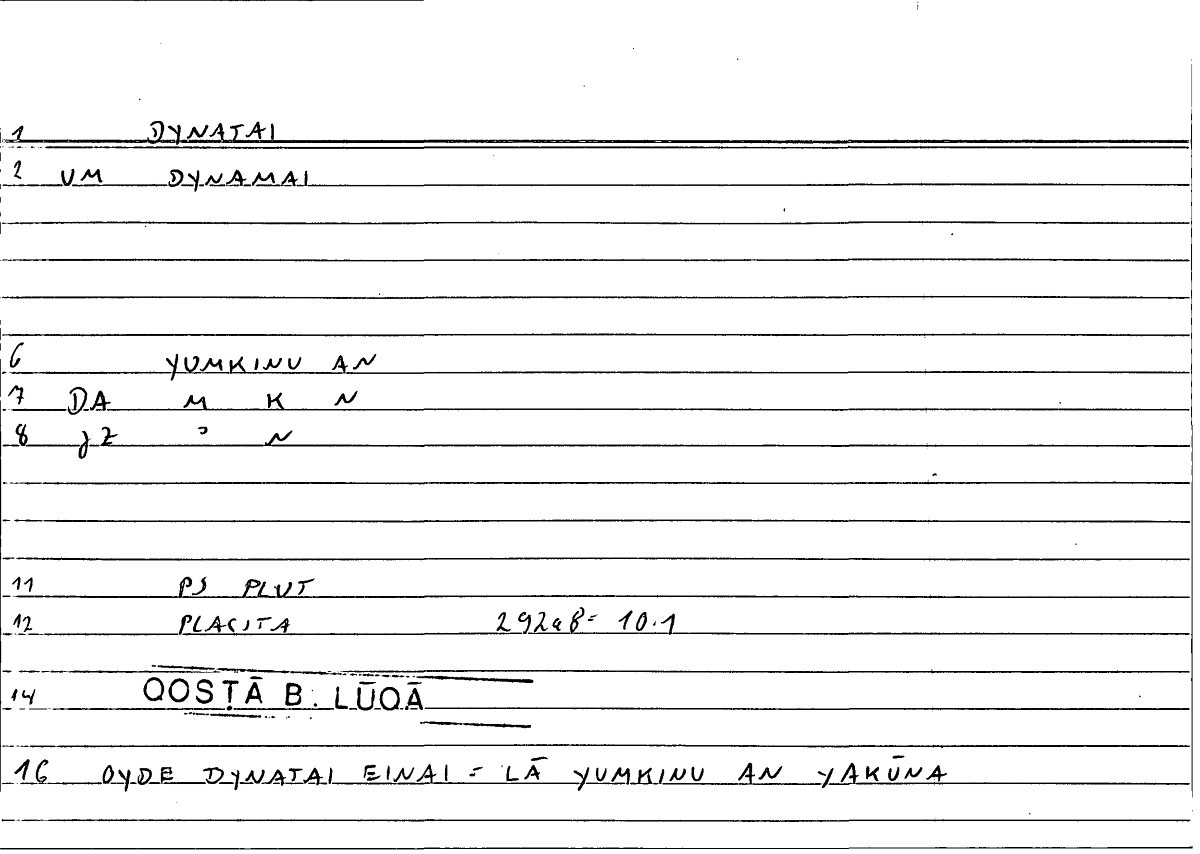 1 DYNATAI
2 VM DYNAMAI
6 YUMKINU AN
7 DA M K N
8 JZ ᵓ N
11 PS PLUT
12 PLACITA 292a8= 10.1
14 QOSṬĀ B. LŪQĀ
16 OYDE DYNATAI EINAI = LĀ YUMKINU AN YAKŪNA